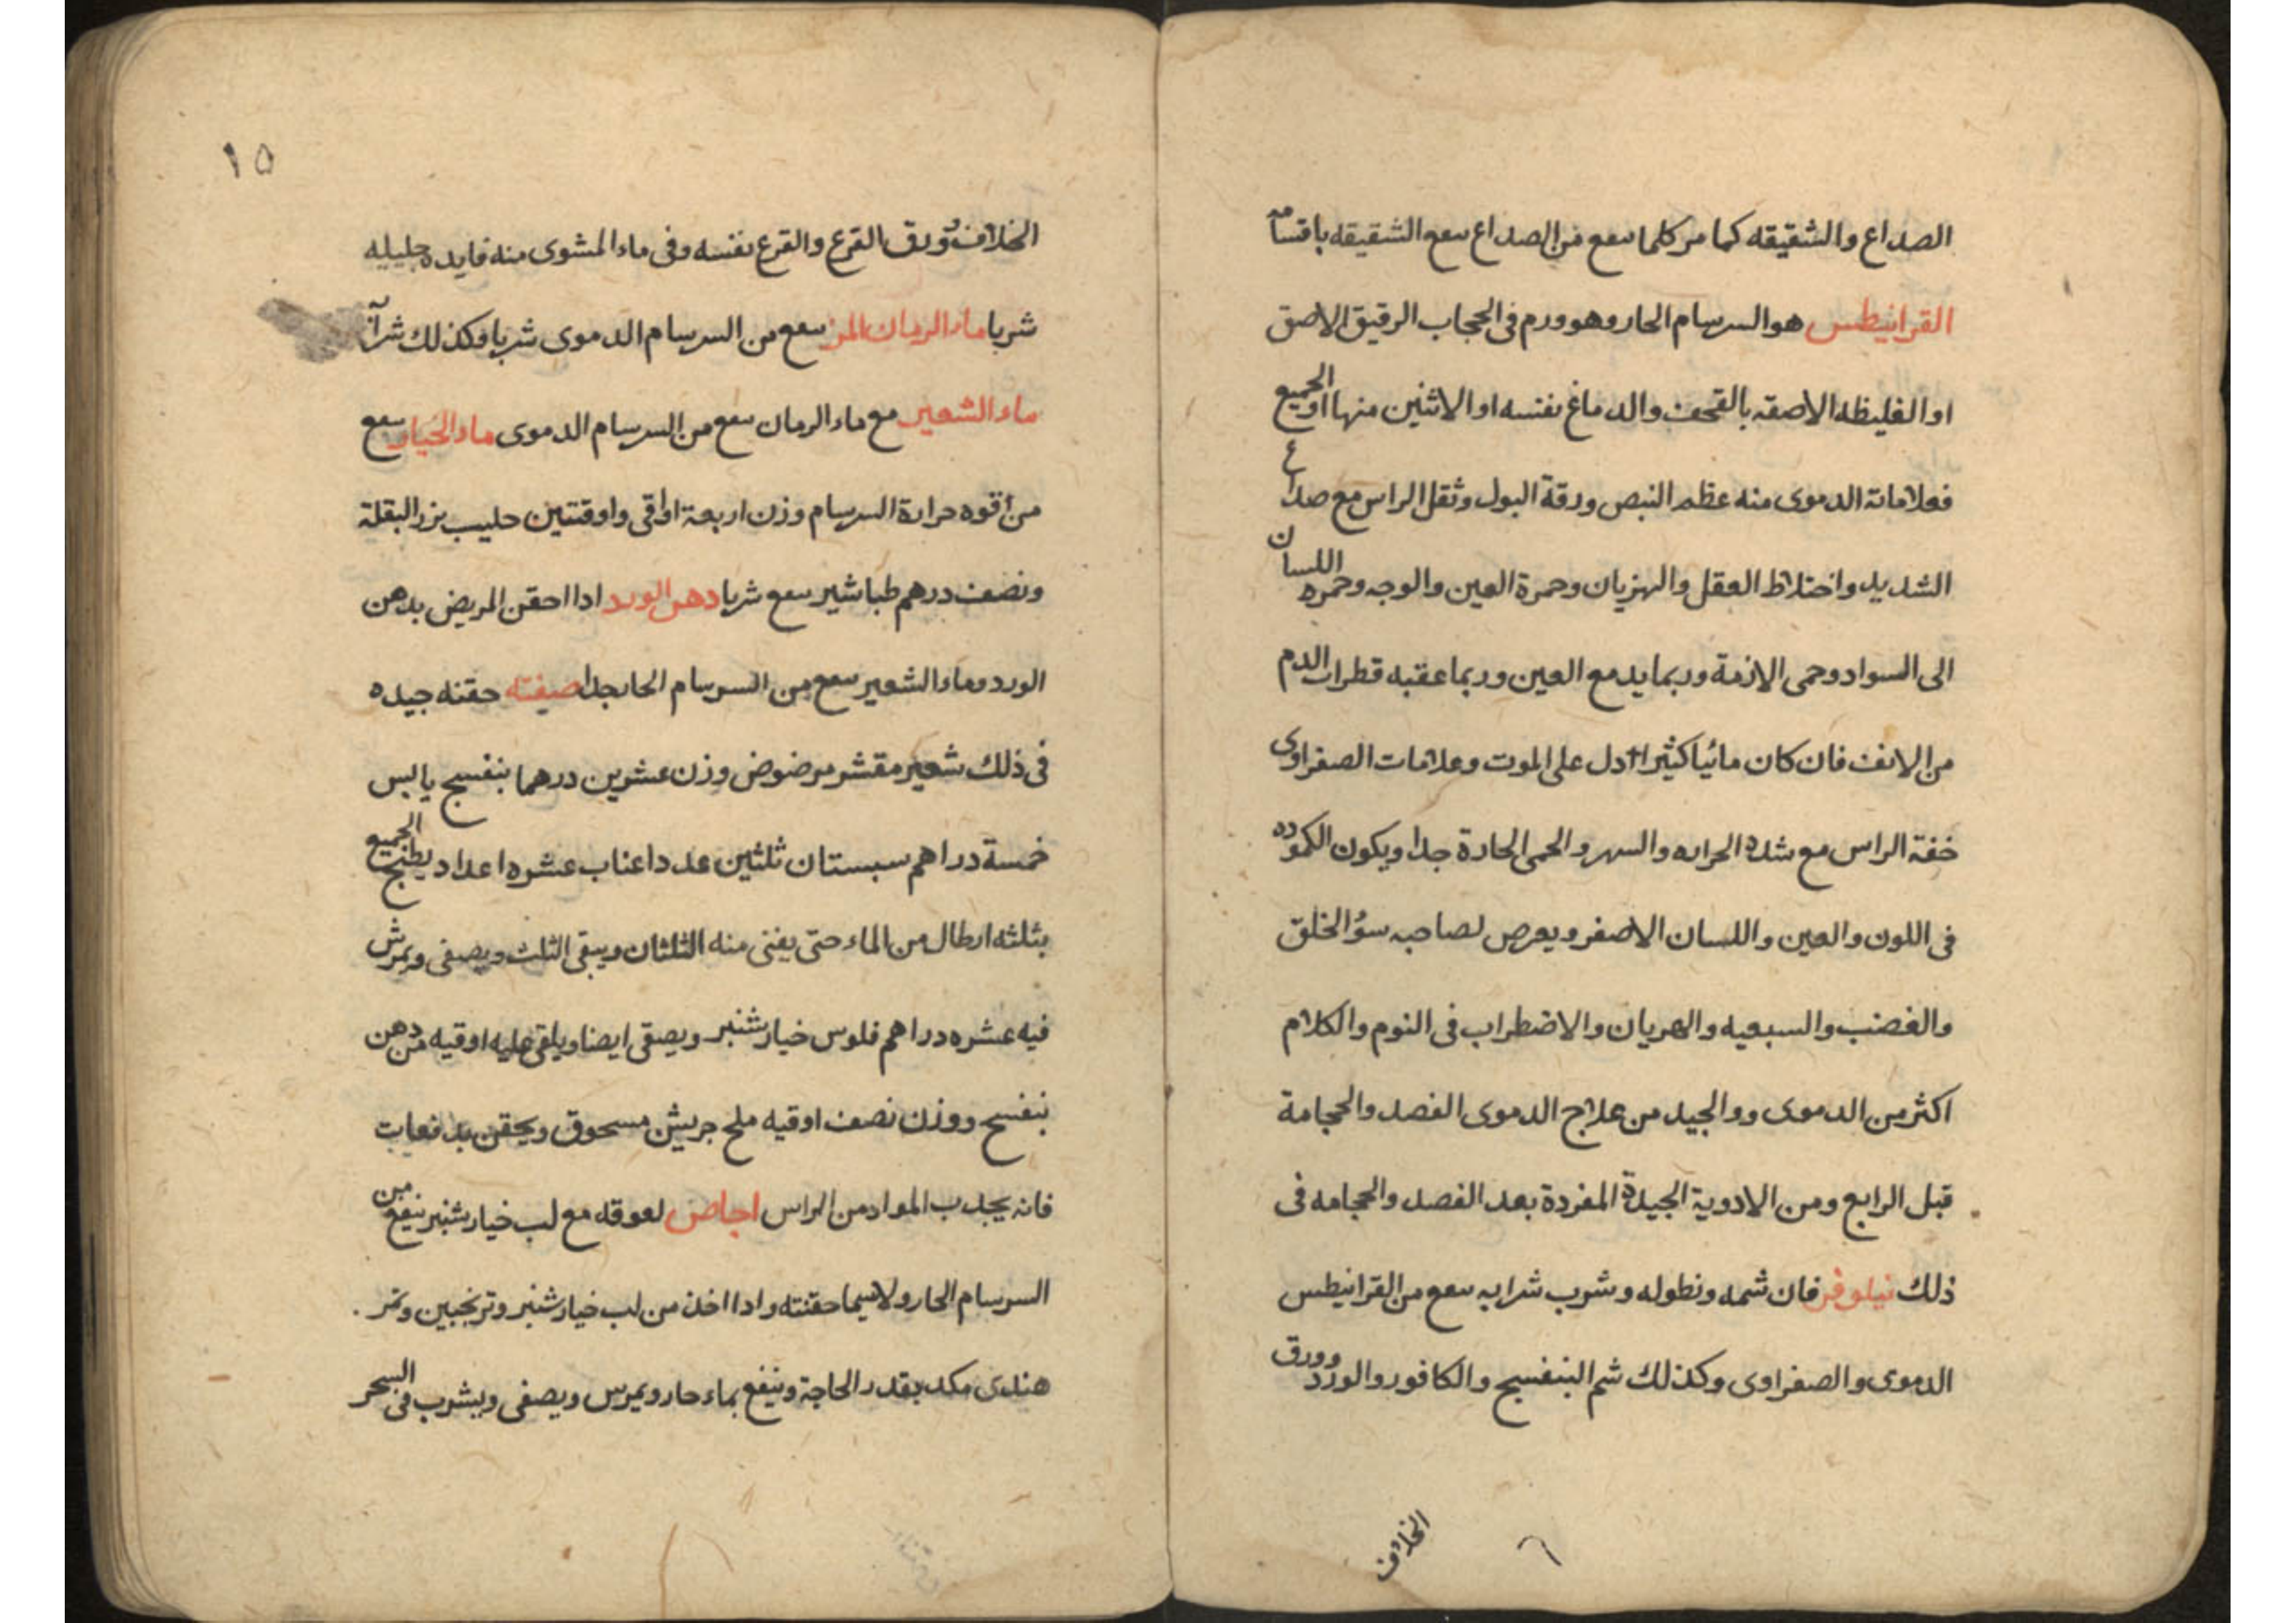 الصداع والشقيقه كما مر كلما ىىفع من الصداع ىىفع الشقيقه باقسامه
القرانيطس هو السرسام الحار وهو ورم فى الحجاب الرقيق الاصق
او الغليظه الاصقه بالقحف والدماغ نفسه او الاثنين منها او الجميع
فعلاماتة الدموى منه عظم النبص ورقة البول وثقل الراس مع صداع
الشديد واختلاط العقل والهزيان وحمرة العين والوجه وحمره اللسان
الى السواد وحمى الازمة وربما يدمع العين وربما عقبه قطرات الدم
من الانف فان كان مائيا كثيرا دل على الموت وعلامات الصفراوى
خفة الراس مع شدة الحراره والسهر والحمى الحادة جدا ويكون الكموده
فى اللون والعين واللسان الاصفر ويعرص لصاحبه سؤ الخلق
والغضب والسبعيه والهريان والاضطراب فى النوم والكلام
اكثر من الدموى ووالجيد من علاج الدموى الفصد والحجامة
قبل الرابع ومن الادوية الجيدة المفردة بعد الفصد والحجامه فى
ذلك نيلوفر فان شمه ونطوله وشرب شرابه ىىفع من القرانيطس
الدموى والصفراوى وكذلك شم البنفسج والكافور والورد وورق
الخلاف
٦
١٥
الخلاف وورق القرع والقرع نفسه وفى ماء المشوى منه فايده جليله
شربا ماء الرمان المز ىىفع من السرسام الدموى شربا وكذلك شرآ
ماء الشعير مع ماء الرمان ىىفع من السرسام الدموى ماء الخيار ىىفع
من أقوه حرارة السرسام وزن اربعة اواقى واوقتتين حليب بزر البقلة
ونصف درهم طباشير ىىفع شربا دهن الورد ادا احقن المريض بدهن
الورد وماء الشعير ىىفع من السرسام الحار جدا صفته حقنه جيده
فى ذلك شعير مقشر مرضوض وزن عشرين درهما بنفسج يابس
خمسة دراهم سبستان ثلثين عددا عناب عشره اعداد يطبخ الجميع
بثلثه ارطال من الماء حتى يفنى منه الثلثان ويبقى الثلث ويصفى ويمرش
فيه عشره دراهم فلوس خيار شنبر ويصقى ايضا ويلقى عليه اوقيه من دهن
بنفسج ووزن نصف اوقيه ملح جريش مسحوق ويحقن بدفعات
فانه يجدب المواد من الراس اجاص لعوقه مع لب خيار شنبر ينفع من
السرسام الحار ولاسيما حقنته وادا اخذ من لب خيار شنبر وترنجبين وتمر
هندى مكد بقدر الحاجة وينفع بماء حار ويمرس ويصفى ويشرب فى السحر